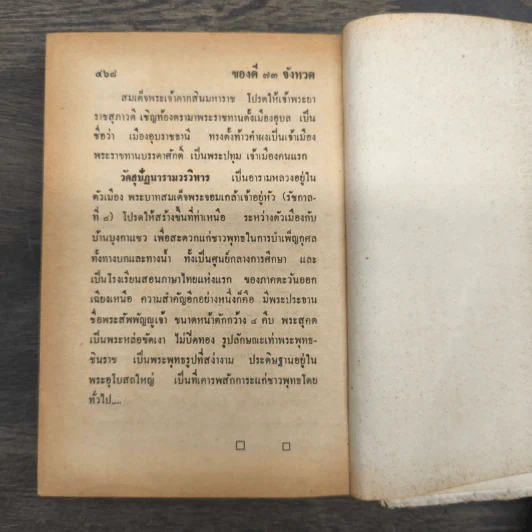 ๕๖๘ ของดี ๗๓ จังหวัด
สมเด็จพระเจ้าตากสินมหาราช โปรดให้เจ้าพระยา
ราชสุภาวดี เชิญท้องตรามาพระราชทานตั้งเมืองอุบล เป็น
ชื่อว่า เมืองอุบราชธานี ทรงตั้งท้าวคำผงเป็นเจ้าเมือง
พระราชทานบรรดาศักดิ์ เป็นพระปทุม เจ้าเมืองคนแรก
วัดสุปัฏนารามวรวิหาร เป็นอารามหลวงอยู่ใน
ตัวเมือง พระบาทสมเด็จพระจอมเกล้าเจ้าอยู่หัว (รัชกาล-
ที่ ๔) โปรดให้สร้างขึ้นที่ท่าเหนือ ระหว่างตัวเมืองกับ
บ้านบุงกาแซว เพื่อสะดวกแก่ชาวพุทธในการบำเพ็ญกุศล
ทั้งทางบกและทางน้ำ ทั้งเป็นศูนย์กลางการศึกษา และ
เป็นโรงเรียนสอนภาษาไทยแห่งแรก ของภาคตะวันออก
เฉียงเหนือ ความสำคัญอีกอย่างหนึ่งก็คือ มีพระประธาน
ชื่อพระสัพพัญญูเจ้า ขนาดหน้าตักกว้าง ๔ คืบ พระสุคต
เป็นพระหล่อขัดเงา ไม่ปิดทอง รูปลักษณะเท่าพระพุทธ-
ชินราช เป็นพระพุทธรูปที่สง่างาม ประดิษฐานอยู่ใน
พระอุโบสถใหญ่ เป็นที่เคารพสักการะแก่ชาวพุทธโดย
ทั่วไป....